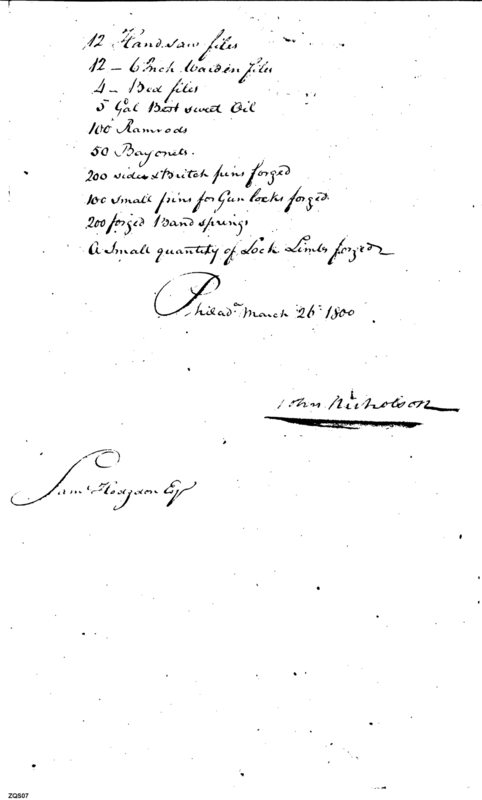 12 Handsaw files
12 - 6 Inch Warden files
4 - Bed files
5 Gal Best sweet Oil
100 Ramrods
50 Bayonets.
200 sides & Britch pins forged
100 small pins for Gun locks forged.
200 forged Band springs
A Small quantity of Lock Limbs forged
Philada March 26th 1800
John Nicholson
Saml Hodgdon Esqr
ZQS07